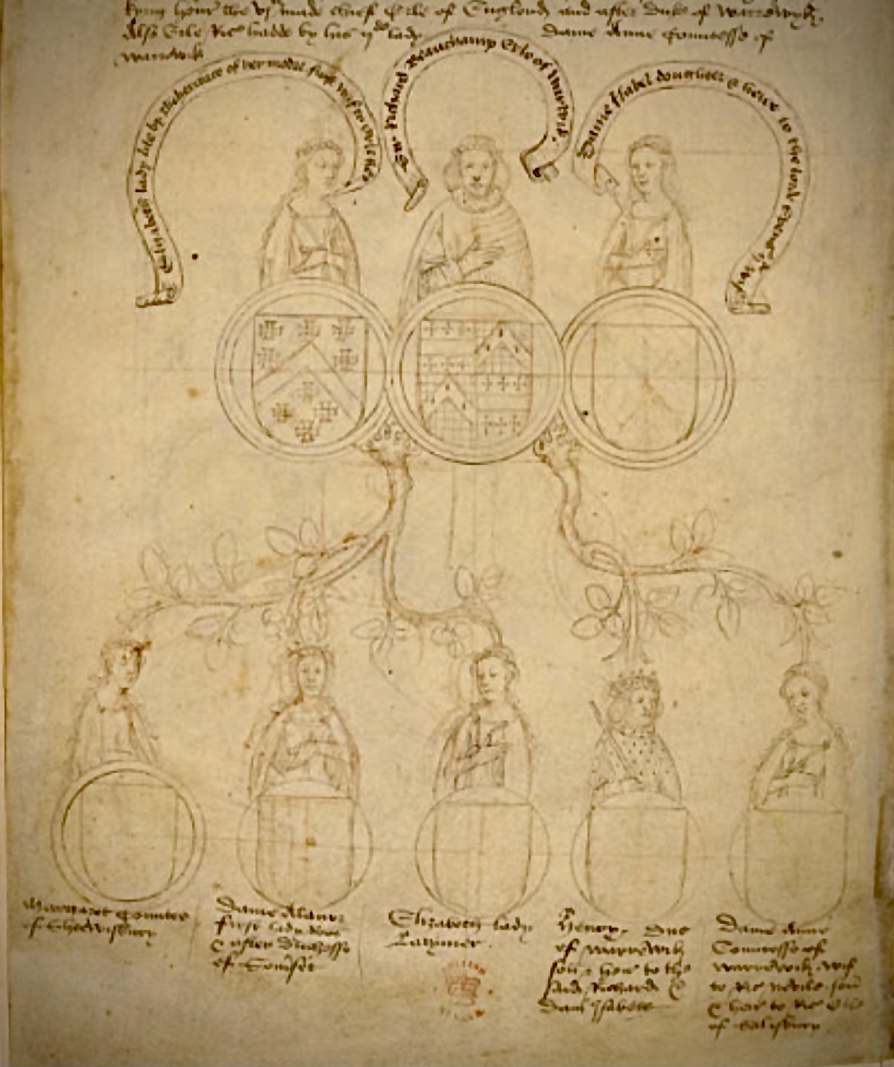 kyng henr the vjt made chief Erle of Englond and after Duke of Warrewyk
Also Erle Ric hadde by his ijde lady Dame Anne Countesse of
Warrewik
Elizabeth lady lile by thenheritaunce of her modre first wif to Erle Ric
Sir Richard Beauchamp Erle of Warrewik
Dame Isabel doughter & heire to the lord
Margaret Countes
of Shrewisbury
Dame Alianor
first lady Roos
& after Duchesse
of Somset
Elizabeth lady
Latymer
Henry Duc
of Warrewik
son & heir to the
said Richard &
Dam Isabell
Dame Anne
Countesse of
Warrewik wif
to Ric Nevile son
& heir to Ric Erle
of Salisbury